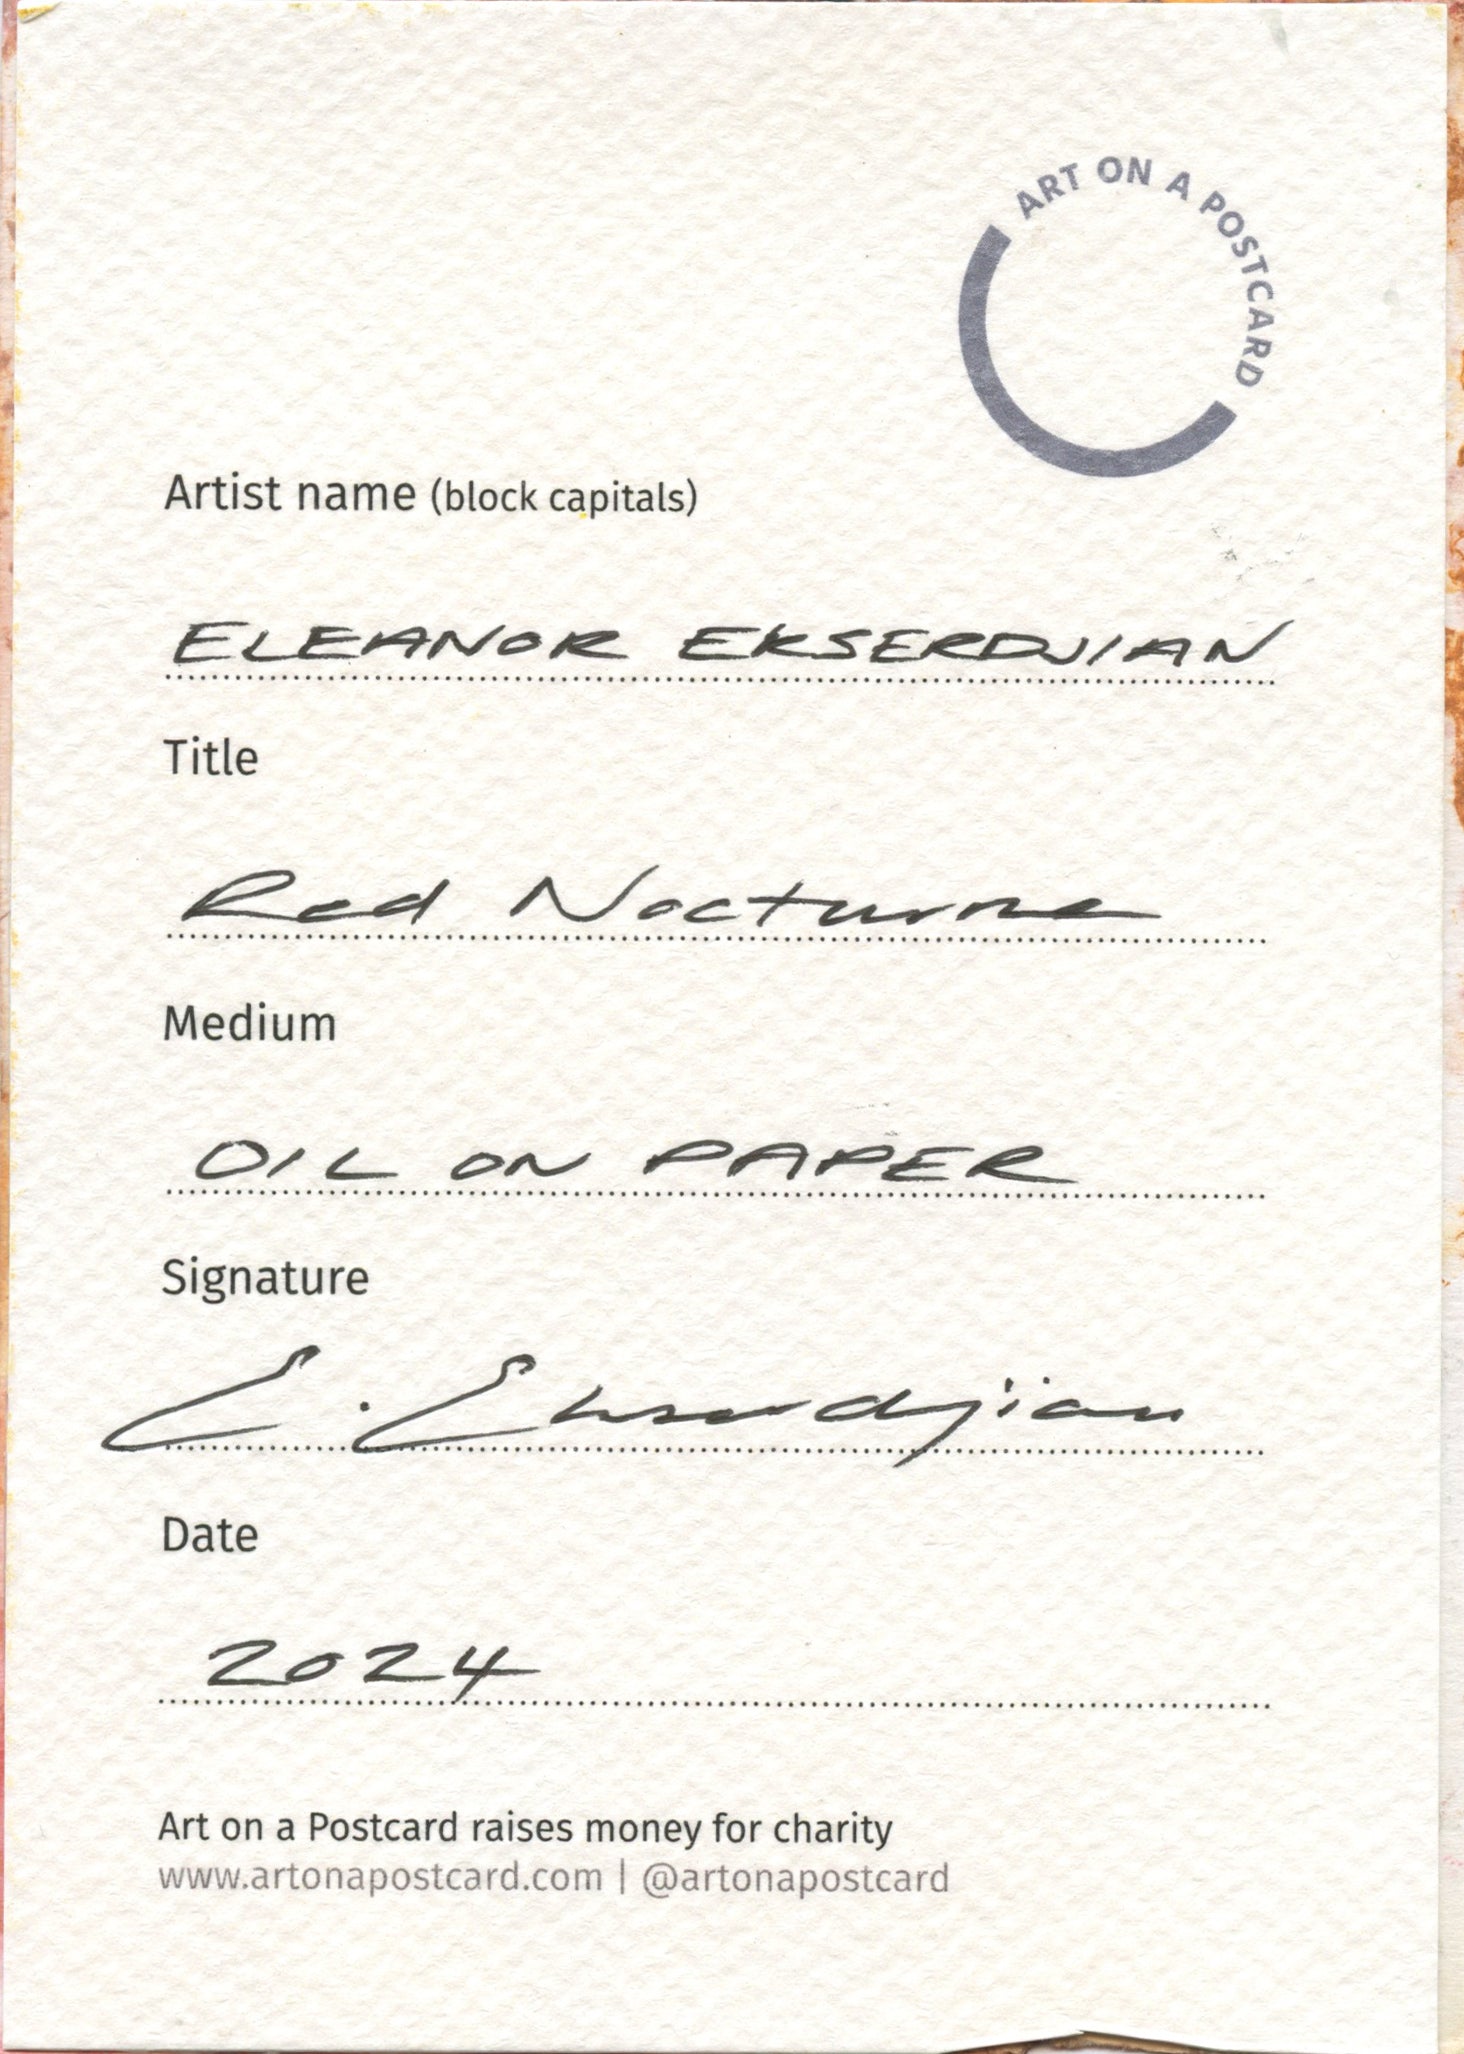 ART ON A POSTCARD
Artist name (block capitals)
ELEANOR EKSERDJIAN
Title
Red Nocturne
Medium
OIL ON PAPER
Signature
E. Ekserdjian
Date
2024
Art on a Postcard raises money for charity
www.artonapostcard.com | @artonapostcard